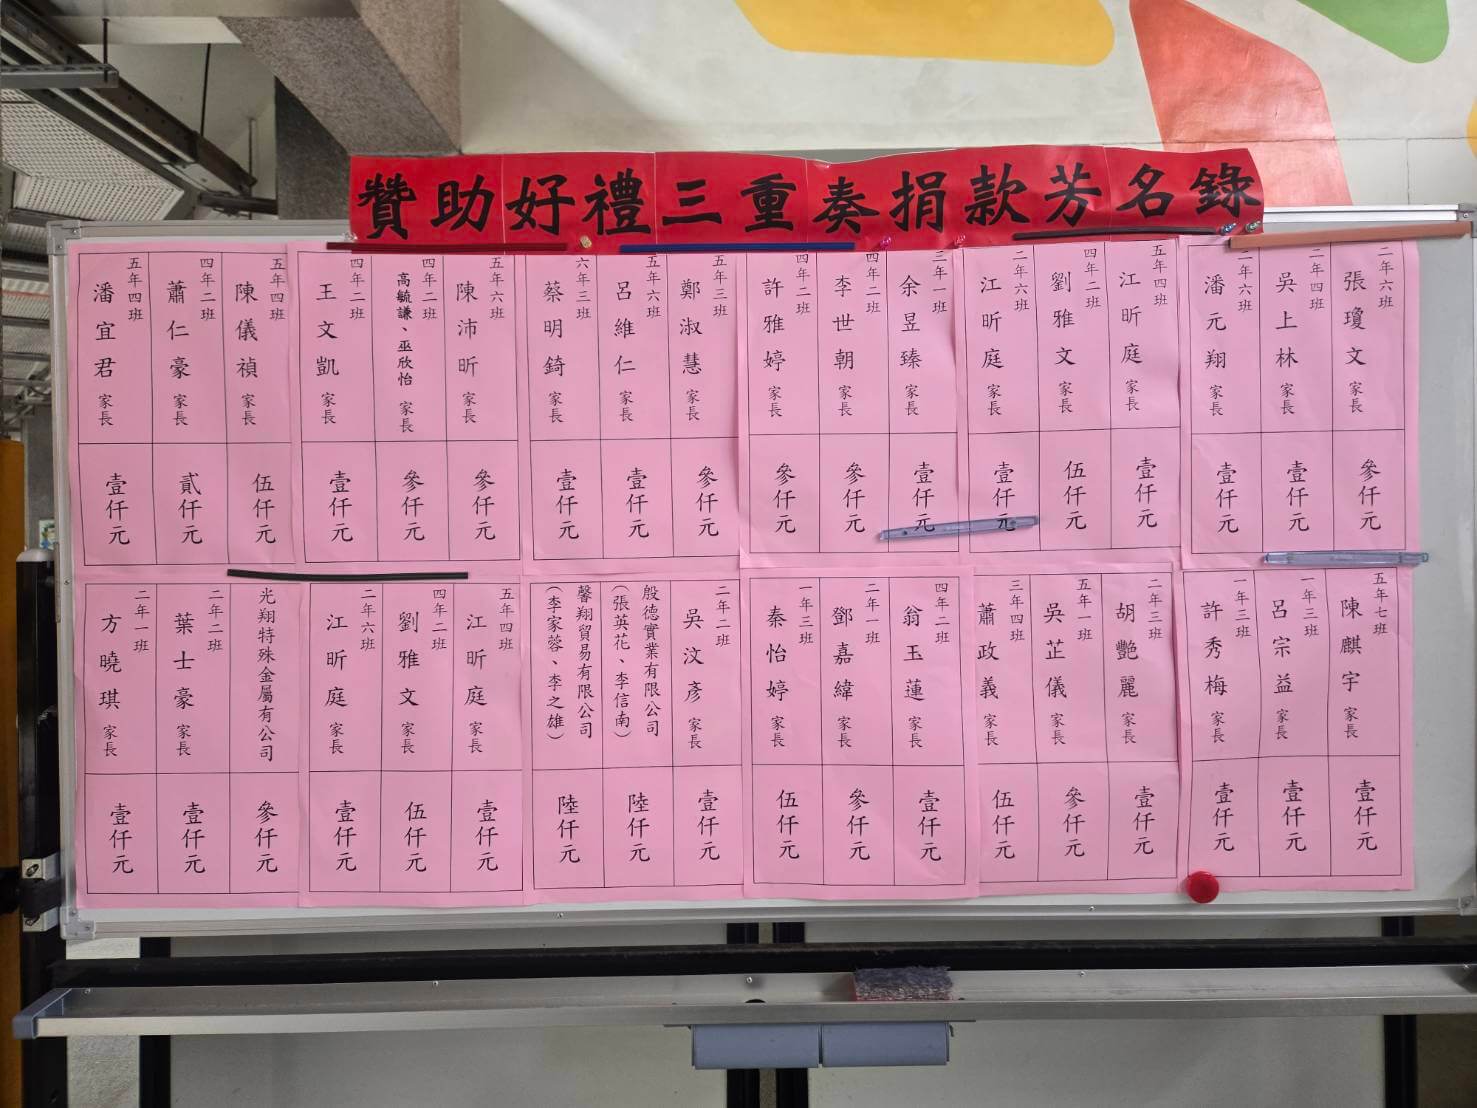 贊助好禮三重奏捐款芳名錄
二年六班 張瓊文 家長 參仟元
二年四班 吳上林 家長 壹仟元
二年六班 潘元翔 家長 壹仟元
五年四班 江昕庭 家長 壹仟元
四年二班 劉雅文 家長 伍仟元
二年六班 江昕庭 家長 壹仟元
三年一班 余昱臻 家長 壹仟元
四年二班 李世朝 家長 參仟元
四年二班 許雅婷 家長 參仟元
五年三班 鄭淑慧 家長 參仟元
五年六班 呂維仁 家長 壹仟元
六年三班 蔡明錡 家長 壹仟元
五年六班 陳沛昕 家長 參仟元
四年二班 高毓謙、巫欣怡 家長 參仟元
四年二班 王文凱 家長 壹仟元
五年四班 陳儀禎 家長 伍仟元
四年二班 蕭仁豪 家長 貳仟元
五年四班 潘宜君 家長 壹仟元
五年七班 陳麒宇 家長 壹仟元
一年三班 呂宗益 家長 壹仟元
一年三班 許秀梅 家長 壹仟元
二年三班 胡艷麗 家長 壹仟元
五年一班 吳芷儀 家長 參仟元
三年四班 蕭政義 家長 伍仟元
四年二班 翁玉蓮 家長 壹仟元
二年一班 鄧嘉緯 家長 參仟元
一年三班 秦怡婷 家長 伍仟元
二年二班 吳汶彥 家長 壹仟元
殷德實業有限公司
（張英花、李信南） 陸仟元
馨翔貿易有限公司
（李家蓉、李之雄） 陸仟元
五年四班 江昕庭 家長 壹仟元
四年二班 劉雅文 家長 伍仟元
二年六班 江昕庭 家長 壹仟元
光翔特殊金屬有公司 參仟元
二年二班 葉士豪 家長 壹仟元
二年一班 方曉琪 家長 壹仟元